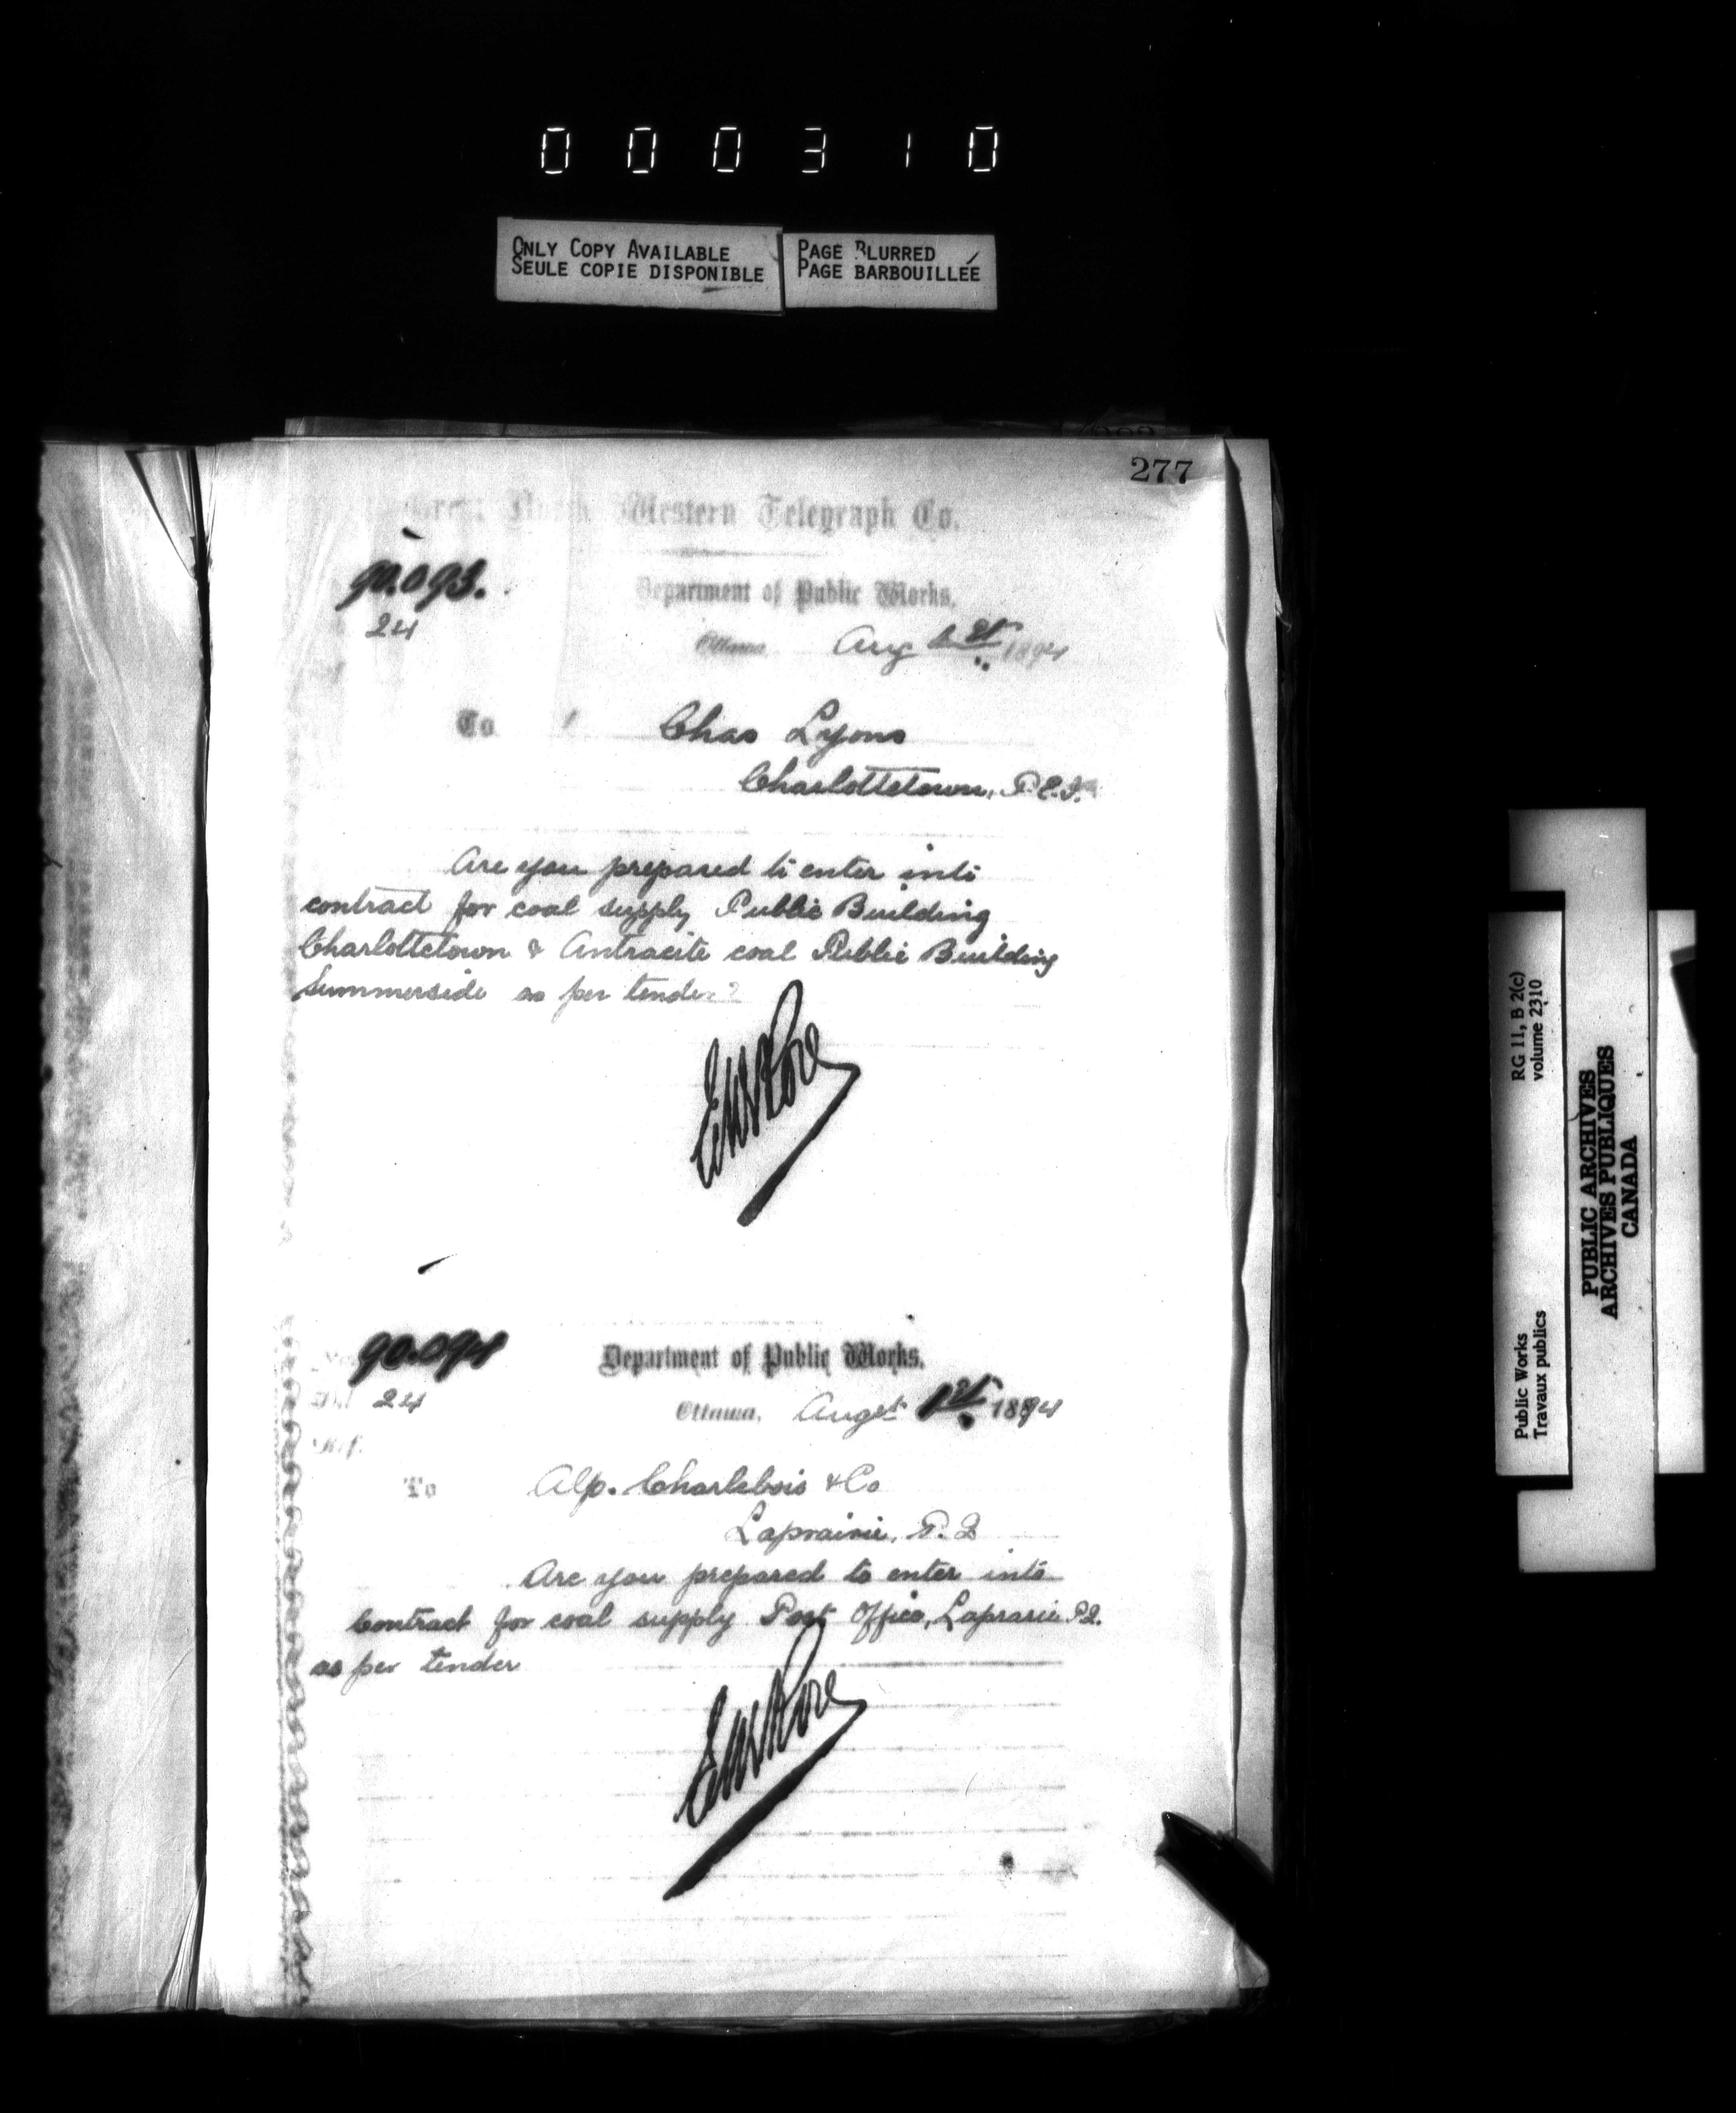 000310
ONLY COPY AVAILABLE
SEULE COPIE DISPONIBLE
PAGE BLURRED
PAGE BARBOUILLÉE
277
Western Telegraph Co.
90.093.
24
Department of Public Works.
Ottawa, Aug 1st 1894
To Chas Lyons
Charlottetown, P.E.I.
Are you prepared to enter into
contract for coal supply Public Building
Charlottetown & Antracite coal Public Building
Summerside as per tender?
90.094
24
Department of Public Works.
Ottawa, Augst 1st 1894
Ref.
To Alp. Charlebois & Co
Laprairie, P.Q
Are you prepared to enter into
Contract for coal supply Post Office, Laprarie P.Q.
as per tender
RG 11, B 2(c)
volume 2310
Public Works
Travaux publics
PUBLIC ARCHIVES
ARCHIVES PUBLIQUES
CANADA